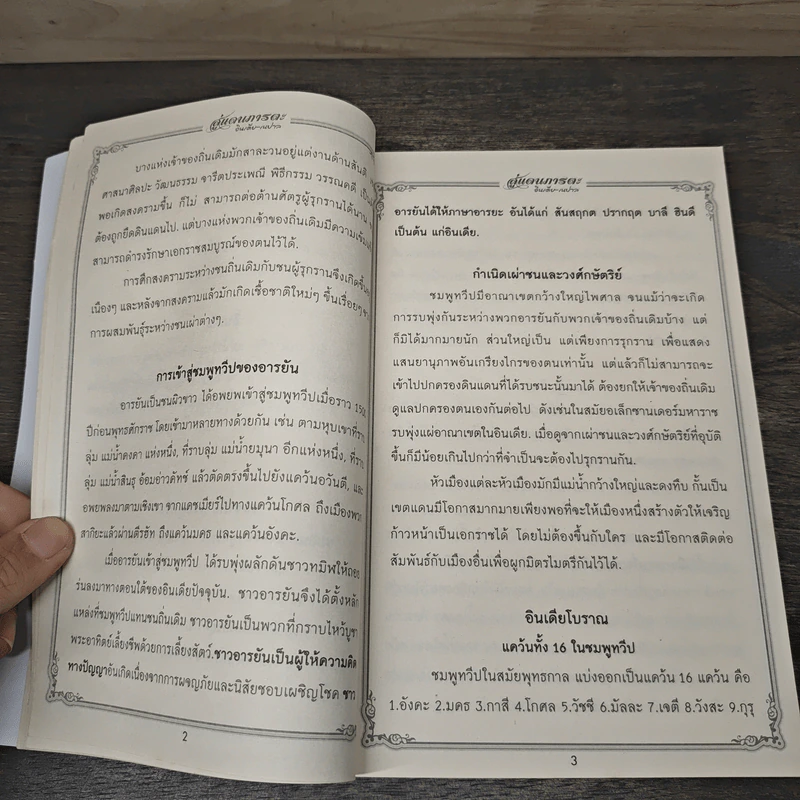 สู่แดนภารตะ
อินเดีย-เนปาล
บางแห่งเจ้าของถิ่นเดิมมักสาละวนอยู่แต่งานด้านสันติ
ศาสนาศิลปะ วัฒนธรรม จารีตประเพณี พิธีกรรม วรรณคดี
พอเกิดสงครามขึ้น ก็ไม่ สามารถต่อต้านศัตรูผู้รุกรานได้นาน
ต้องถูกยึดดินแดนไป. แต่บางแห่งพวกเจ้าของถิ่นเดิมมีความ
สามารถดำรงรักษาเอกราชสมบูรณ์ของตนไว้ได้.
การศึกสงครามระหว่างชนถิ่นเดิมกับชนผู้รุกรานจึงเกิดขึ้น
เนื่องๆ และหลังจากสงครามแล้วมักเกิดเชื้อชาติใหม่ๆ ขึ้นเรื่อยๆ
การผสมพันธุ์ระหว่างชนเผ่าต่างๆ.
การเข้าสู่ชมพูทวีปของอารยัน
อารยันเป็นชนผิวขาว ได้อพยพเข้าสู่ชมพูทวีปเมื่อราว 1500
ปีก่อนพุทธศักราช โดยเข้ามาหลายทางด้วยกัน เช่น ตามหุบเขาที่ราบ
ลุ่ม แม่น้ำคงคา แห่งหนึ่ง, ที่ราบลุ่ม แม่น้ำยมุนา อีกแห่งหนึ่ง, ที่ราบ
ลุ่ม แม่น้ำสินธุ อ้อมอ่าวคัทช์ แล้วตัดตรงขึ้นไปยังแคว้นอวันตี, และ
อพยพลงมาตามเชิงเขา จากแคชเมียร์ไปทางแคว้นโกศล ถึงเมืองพวก
สากิยะแล้วผ่านตีรหัท ถึงแคว้นมคธ และแคว้นอังคะ.
เมื่ออารยันเข้าสู่ชมพูทวีป ได้รบพุ่งผลักดันชาวทมิฬให้ถอย
ร่นลงมาทางตอนใต้ของอินเดียปัจจุบัน. ชาวอารยันจึงได้ตั้งหลัก
แหล่งที่ชมพูทวีปแทนชนถิ่นเดิม ชาวอารยันเป็นพวกที่กราบไหว้บูชา
พระอาทิตย์เลี้ยงชีพด้วยการเลี้ยงสัตว์.ชาวอารยันเป็นผู้ให้ความคิด
ทางปัญญาอันเกิดเนื่องจากการผจญภัยและนิสัยชอบเผชิญโชค ชาว
2
สู่แดนภารตะ
อินเดีย-เนปาล
อารยันได้ให้ภาษาอารยะ อันได้แก่ สันสฤกต ปรากฤต บาลี ฮินดี
เป็นต้น แก่อินเดีย.
กำเนิดเผ่าชนและวงศ์กษัตริย์
ชมพูทวีปมีอาณาเขตกว้างใหญ่ไพศาล จนแม้ว่าจะเกิด
การรบพุ่งกันระหว่างพวกอารยันกับพวกเจ้าของถิ่นเดิมบ้าง แต่
ก็มิได้มากมายนัก ส่วนใหญ่เป็น แต่เพียงการรุกราน เพื่อแสดง
แสนยานุภาพอันเกรียงไกรของตนเท่านั้น แต่แล้วก็ไม่สามารถจะ
เข้าไปปกครองดินแดนที่ได้รบชนะนั้นมาได้ ต้องยกให้เจ้าของถิ่นเดิม
ดูแลปกครองตนเองกันต่อไป ดังเช่นในสมัยอเล็กซานเดอร์มหาราช
รบพุ่งแผ่อาณาเขตในอินเดีย. เมื่อดูจากเผ่าชนและวงศ์กษัตริย์ที่อุบัติ
ขึ้นก็มีน้อยเกินไปกว่าที่จำเป็นจะต้องไปรุกรานกัน.
หัวเมืองแต่ละหัวเมืองมักมีแม่น้ำกว้างใหญ่และดงทึบ กั้นเป็น
เขตแดนมีโอกาสมากมายเพียงพอที่จะให้เมืองหนึ่งสร้างตัวให้เจริญ
ก้าวหน้าเป็นเอกราชได้ โดยไม่ต้องขึ้นกับใคร และมีโอกาสติดต่อ
สัมพันธ์กับเมืองอื่นเพื่อผูกมิตรไมตรีกันไว้ได้.
อินเดียโบราณ
แคว้นทั้ง 16 ในชมพูทวีป
ชมพูทวีปในสมัยพุทธกาล แบ่งออกเป็นแคว้น 16 แคว้น คือ
1.อังคะ 2.มคธ 3.กาสี 4.โกศล 5.วัชชี 6.มัลละ 7.เจตี 8.วังสะ 9.กุรุ
3